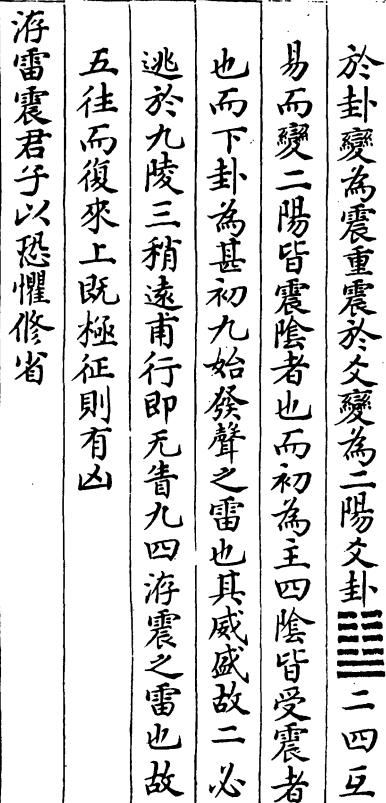 於卦變為震重震於爻變為二陽爻卦䷒二四互
易而變二陽皆震陰者也而初為主四陰皆受震者
也而下卦為甚初九始發聲之雷也其威盛故二必
逃於九陵三稍遠甫行即无眚九四洊震之雷也故
五往而復來上既極征則有凶
洊雷震君子以恐懼修省